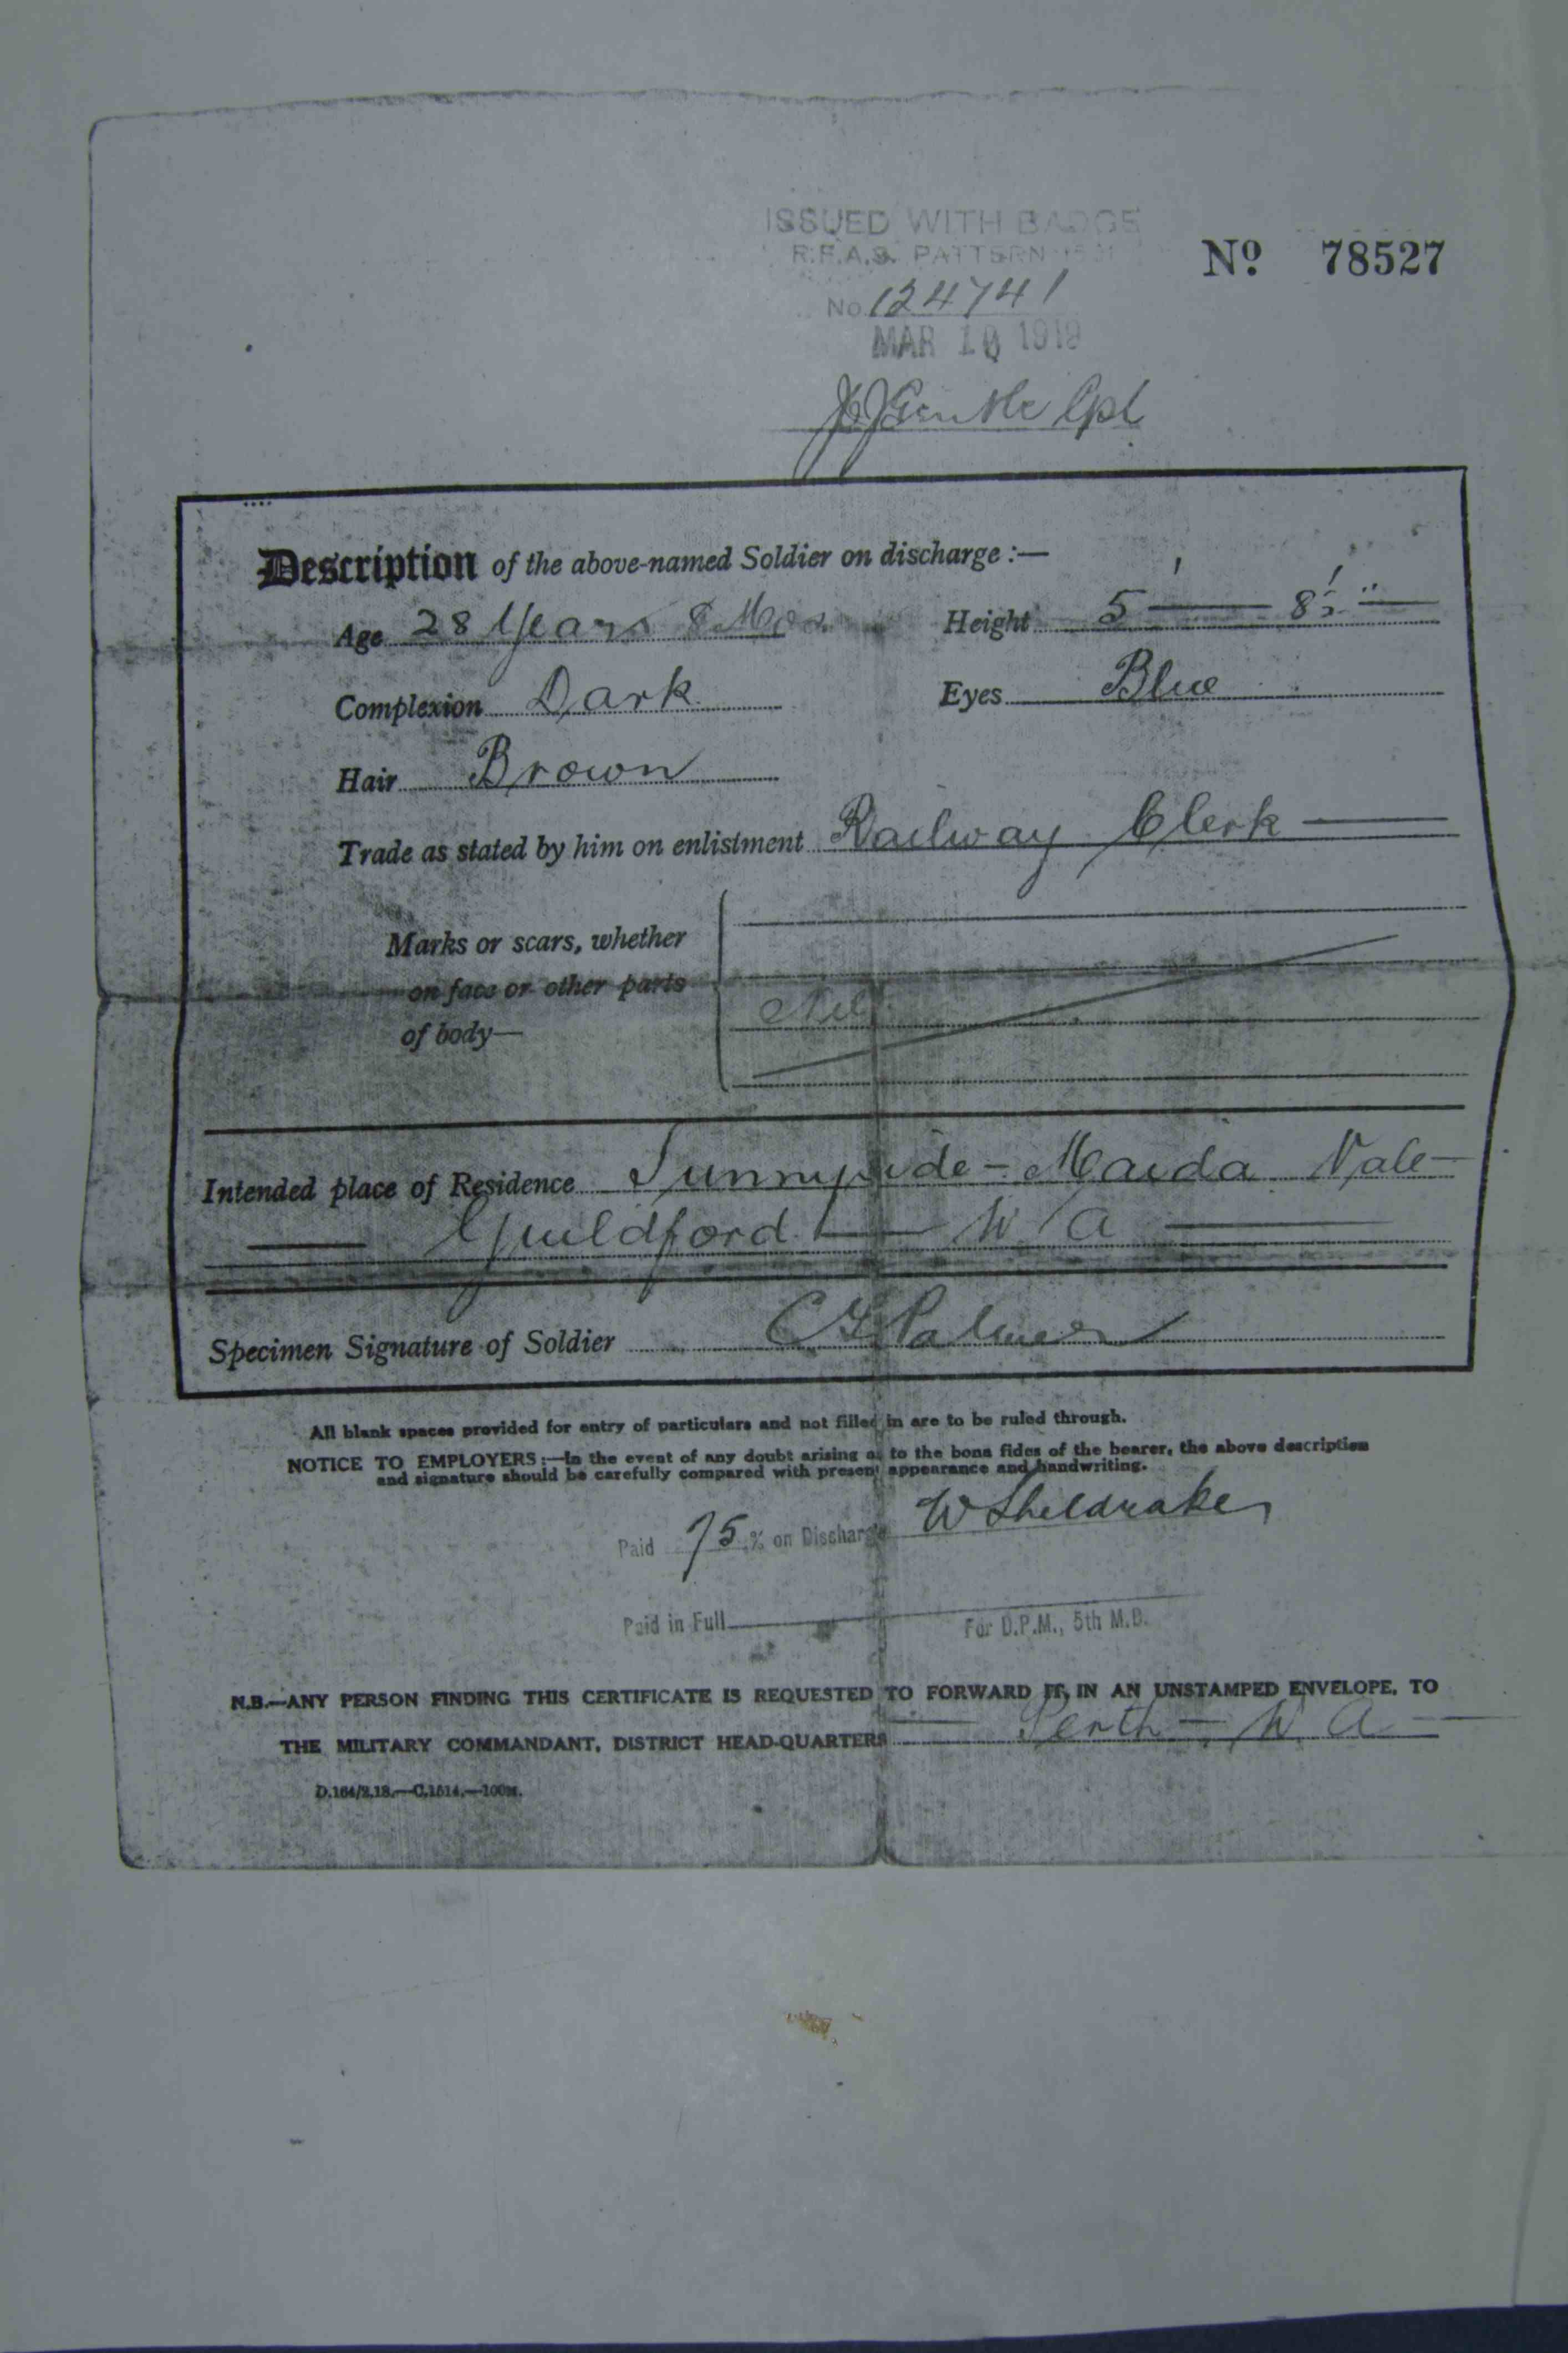 ISSUED WITH BADGE
R.F.A.S. PATTERN
No 124741
MAR 10 1919
Nº 78527
Cpl
Description of the above-named Soldier on discharge :—
Age 28 Years 8 Mos. Height 5' — 8½" —
Complexion Dark Eyes Blue
Hair Brown
Trade as stated by him on enlistment Railway Clerk —
Marks or scars, whether
on face or other parts
of body—
Nil
Intended place of Residence Sunnyside - Maida Vale -
— Guildford — W A —
Specimen Signature of Soldier C G Palmer
All blank spaces provided for entry of particulars and not filled in are to be ruled through.
NOTICE TO EMPLOYERS :—In the event of any doubt arising as to the bona fides of the bearer, the above description
and signature should be carefully compared with present appearance and handwriting.
Paid 75 % on Discharge W Sheldrake
Paid in Full — For D.P.M., 5th M.D.
N.B.—ANY PERSON FINDING THIS CERTIFICATE IS REQUESTED TO FORWARD IT, IN AN UNSTAMPED ENVELOPE, TO
THE MILITARY COMMANDANT, DISTRICT HEAD-QUARTERS — Perth - W A —
D.164/2.18.—C.1514.—100M.